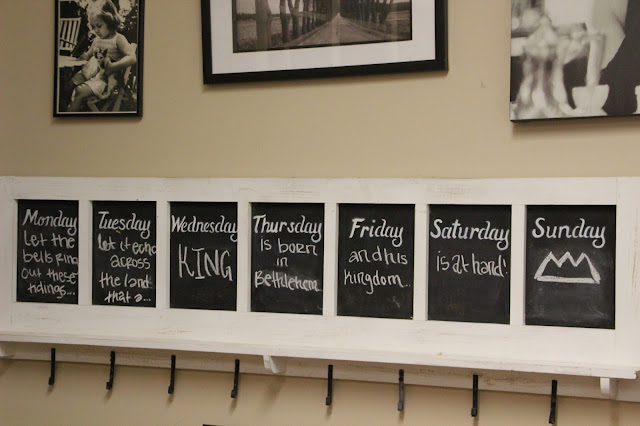 Monday
Let the
bells ring
out these
tidings...
Tuesday
let it echo
across
the land
that a...
Wednesday
KING
Thursday
is born
in
Bethlehem
Friday
and his
Kingdom...
Saturday
is at hand!
Sunday